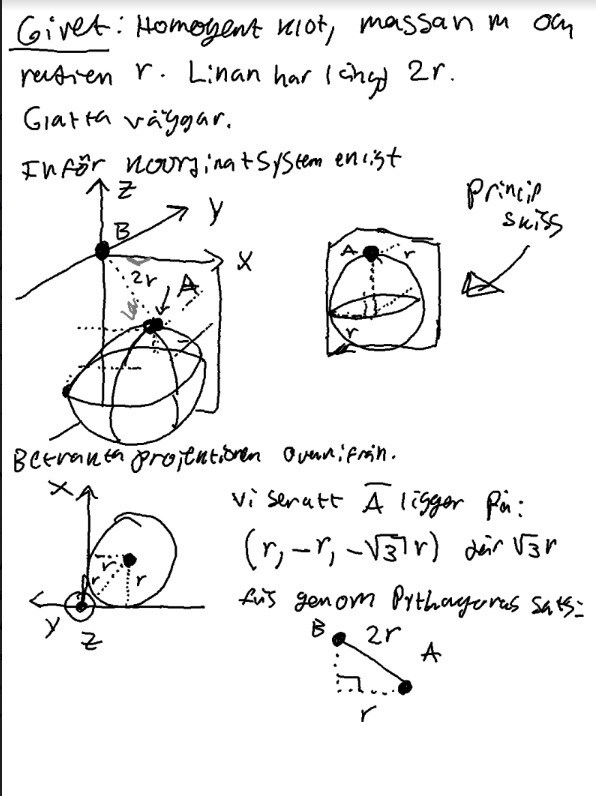 Givet: Homogent klot, massan m och
radien r. Linan har längd 2r.
Glatta väggar.
Inför koordinatsystem enligt
z
y
B
x
2r
A
Princip
skiss
A
r
r
Betrakta projektionen ovanifrån.
x
r
r
r
y
z
Vi ser att A ligger på:
(r, -r, -√3 r) där √3 r
fås genom Pythagoras sats:
B
2r
A
r